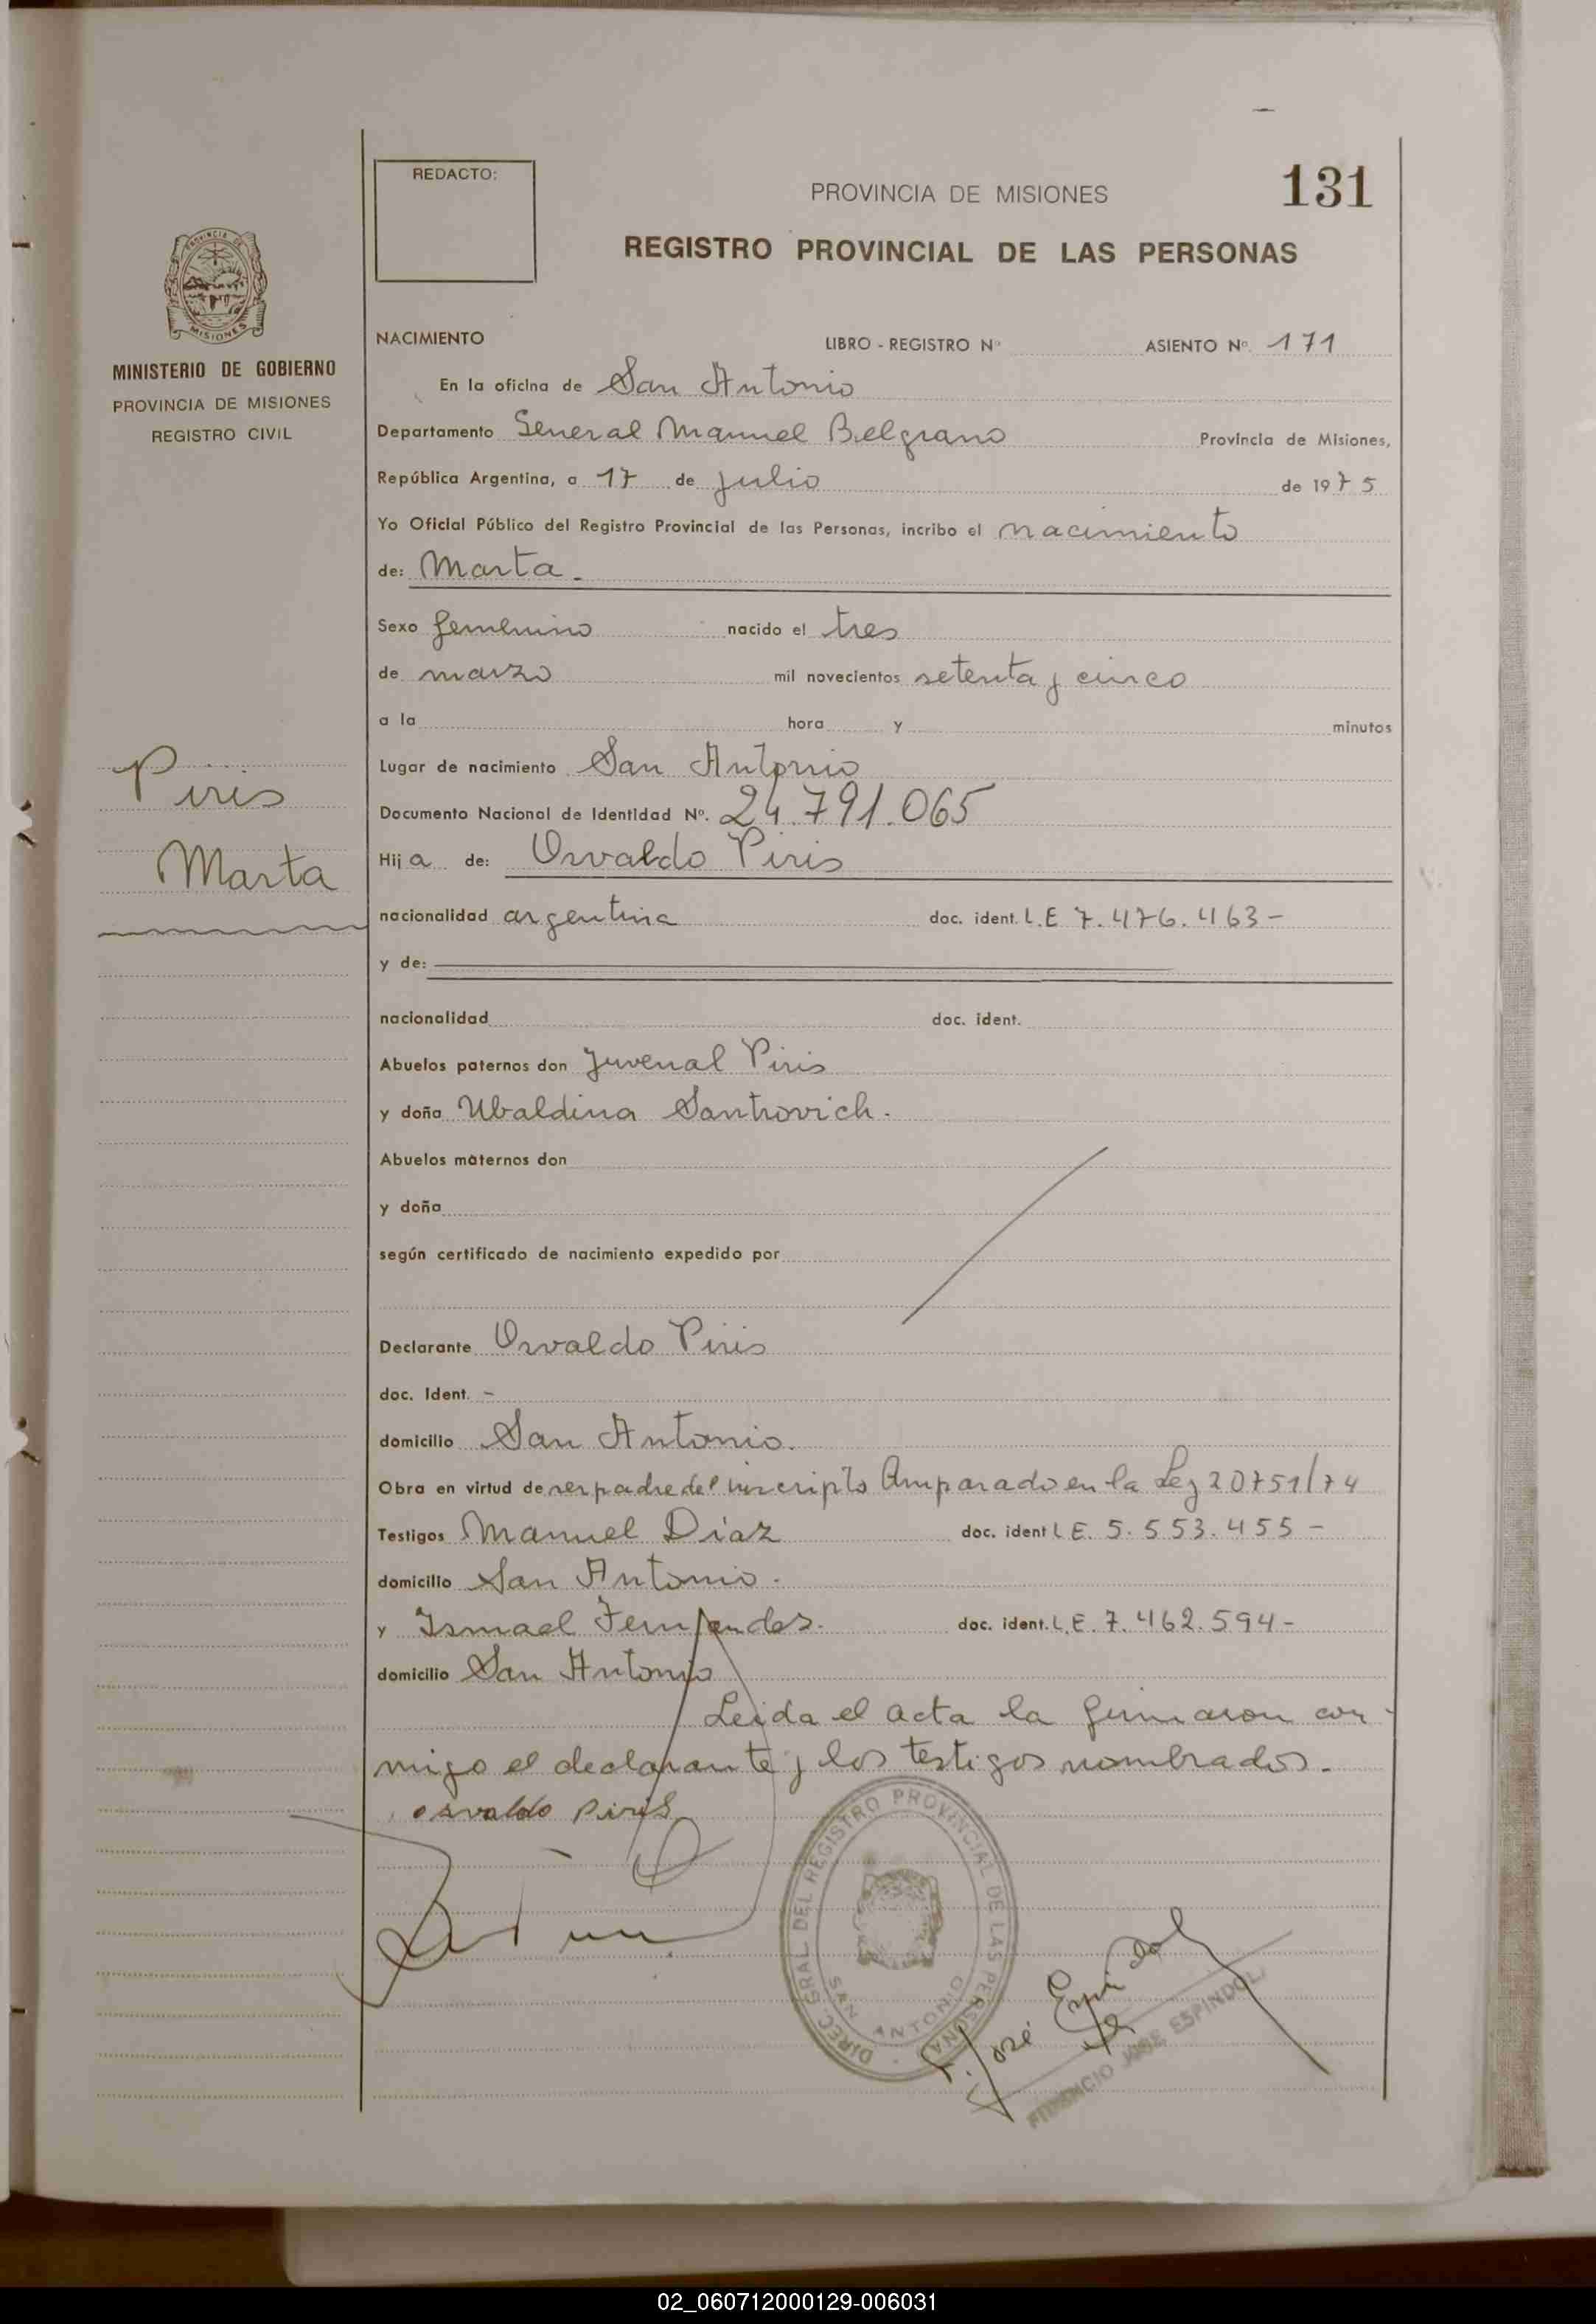 131
REDACTO:
PROVINCIA DE MISIONES
REGISTRO PROVINCIAL DE LAS PERSONAS
PROVINCIA DE MISIONES
MINISTERIO DE GOBIERNO
PROVINCIA DE MISIONES
REGISTRO CIVIL
NACIMIENTO LIBRO - REGISTRO Nº ASIENTO Nº. 171
En la oficina de San Antonio
Departamento General Manuel Belgrano Provincia de Misiones,
República Argentina, a 17 de julio de 1975
Yo Oficial Público del Registro Provincial de las Personas, incribo el nacimiento
de: Marta.
Sexo femenino nacido el tres
de marzo mil novecientos setenta y cinco
a la hora y minutos
Lugar de nacimiento San Antonio
Documento Nacional de Identidad Nº. 24.791.065
Piris
Marta
Hija de: Osvaldo Piris
nacionalidad argentina doc. ident. L.E 7.476.463-
y de:
nacionalidad doc. ident.
Abuelos paternos don Juvenal Piris
y doña Ubaldina Santrovich.
Abuelos maternos don
y doña
según certificado de nacimiento expedido por
Declarante Osvaldo Piris
doc. Ident. -
domicilio San Antonio.
Obra en virtud de ser padre del inscripto Amparado en la Ley 20751/74
Testigos Manuel Díaz doc. ident L E. 5.553.455-
domicilio San Antonio.
y Ismael Fernandez. doc. ident. L.E. 7.462.594-
domicilio San Antonio
Leida el acta la firmaron con-
migo el declarante y los testigos nombrados.
osvaldo piris
DIREC. GRAL. DEL REGISTRO PROVINCIAL DE LAS PERSONAS
SAN ANTONIO
F. José Espindola
JOSE ESPINDOLA
02_060712000129-006031